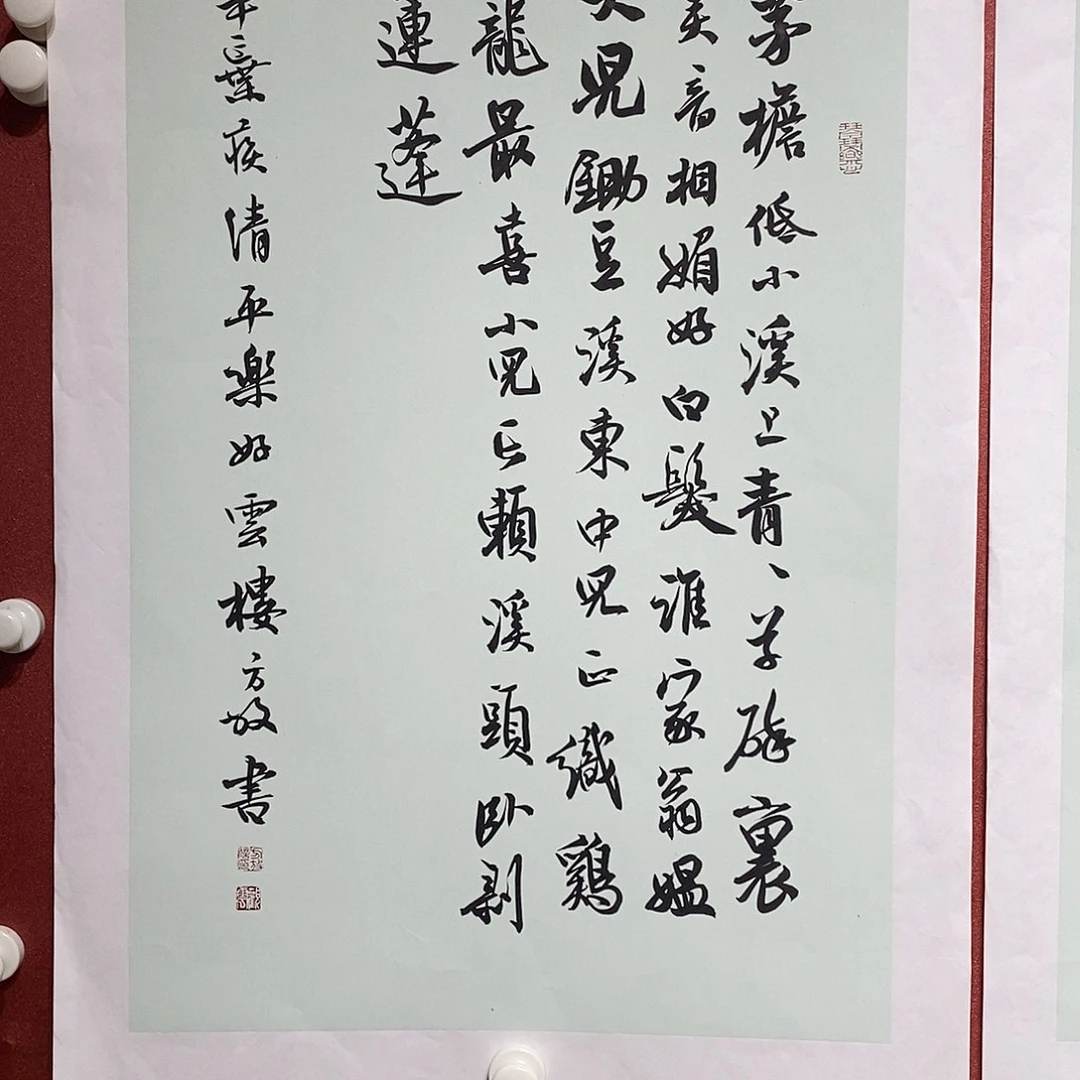 茅檐低小溪上青、草醉裏
吳音相媚好白髮誰家翁媼
大兒鋤豆溪東中兒正織鷄
龍最喜小兒亡賴溪頭卧剝
蓮蓬
辛棄疾清平樂好雲樓方書